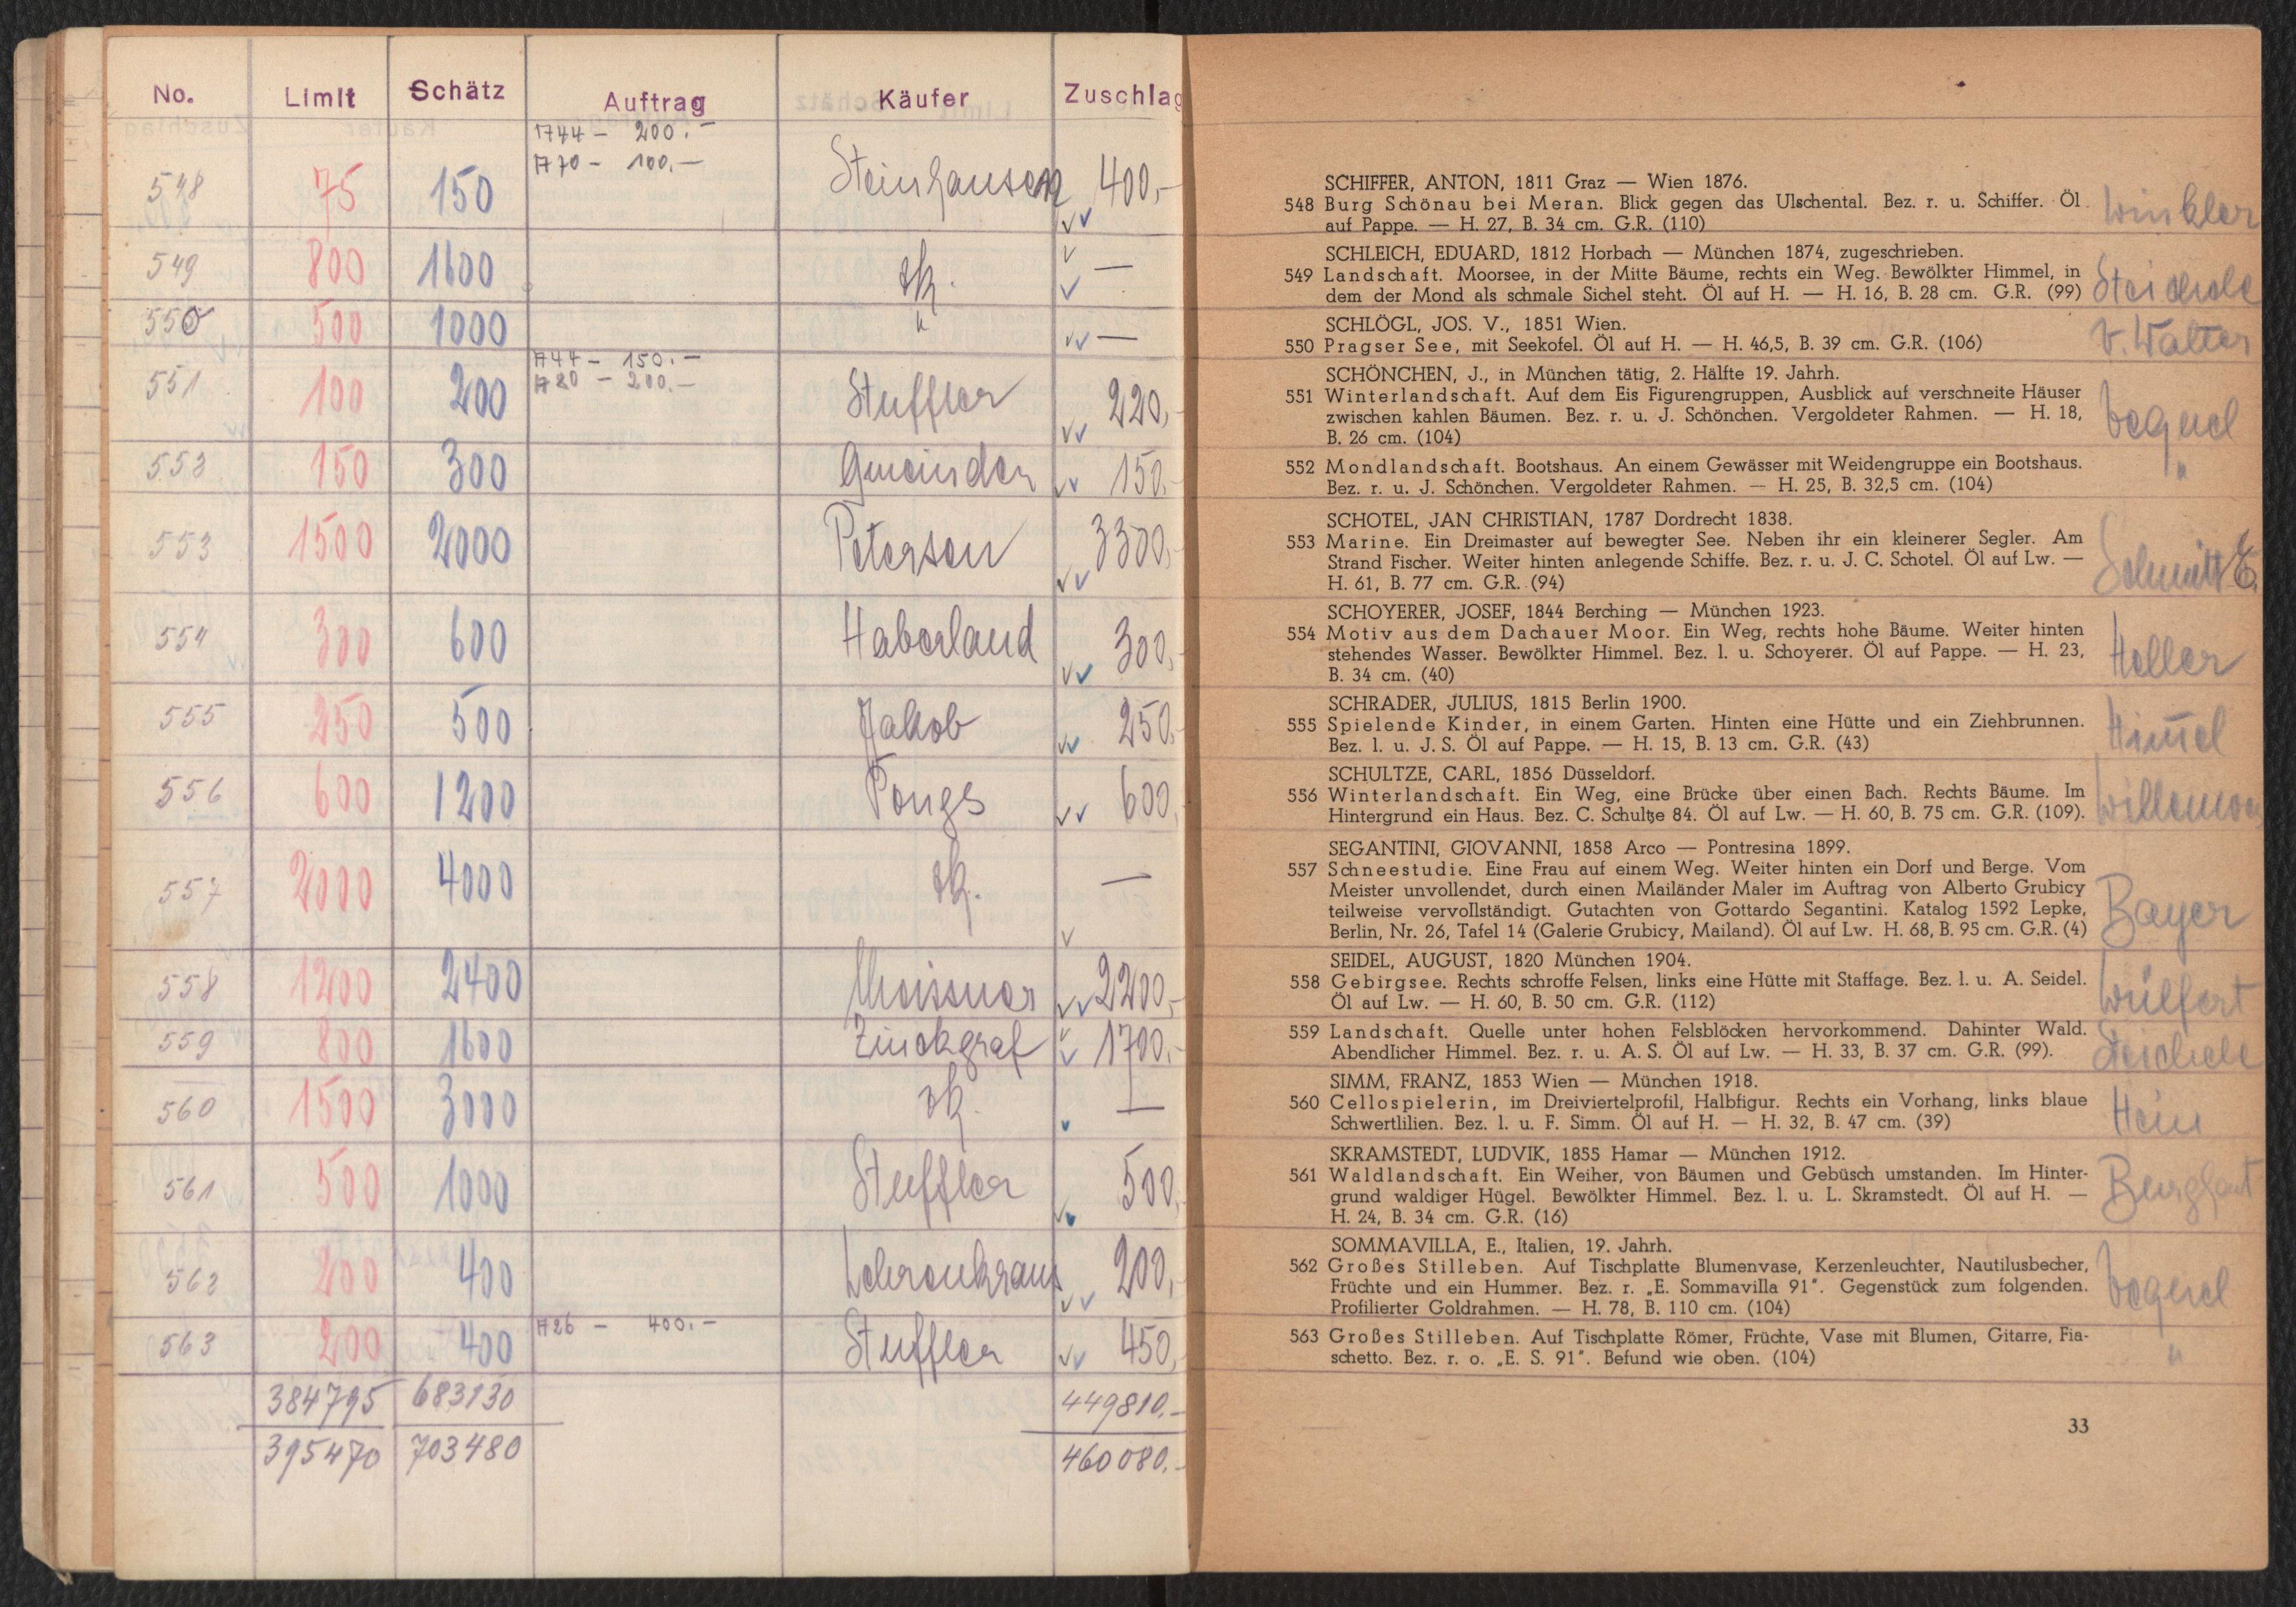 No. Limit Schätz Auftrag Käufer Zuschlag
1744 - 200.-
1770 - 100.-
548 75 150 Steinhausen 400,-
549 800 1600 zk. —
550 500 1000 " —
1744 - 150.-
1780 - 200.-
551 100 200 Stuffler 220,-
552 150 300 Gmeinder 150,-
553 1500 2000 Peterson 3300,-
554 300 600 Haberland 300,-
555 250 500 Jakob 250,-
556 600 1200 Pongs 600,
557 2000 4000 zk. —
558 1200 2400 Meissner 2200,-
559 800 1600 Zinckgraf 1700,-
560 1500 3000 zk. —
561 500 1000 Stuffler 500,
562 200 400 200,
1726 - 400.-
563 200 400 Stuffler 450,
384795 683130 449810.-
395470 703480 460080.-
SCHIFFER, ANTON, 1811 Graz — Wien 1876.
548 Burg Schönau bei Meran. Blick gegen das Ulschental. Bez. r. u. Schiffer. Öl Winkler
auf Pappe. — H. 27, B. 34 cm. G.R. (110)
SCHLEICH, EDUARD, 1812 Horbach — München 1874, zugeschrieben.
549 Landschaft. Moorsee, in der Mitte Bäume, rechts ein Weg. Bewölkter Himmel, in Steichele
dem der Mond als schmale Sichel steht. Öl auf H. — H. 16, B. 28 cm. G.R. (99)
SCHLÖGL, JOS. V., 1851 Wien.
550 Pragser See, mit Seekofel. Öl auf H. — H. 46,5, B. 39 cm. G.R. (106) V. Walter
SCHÖNCHEN, J., in München tätig, 2. Hälfte 19. Jahrh.
551 Winterlandschaft. Auf dem Eis Figurengruppen, Ausblick auf verschneite Häuser
zwischen kahlen Bäumen. Bez. r. u. J. Schönchen. Vergoldeter Rahmen. — H. 18,
B. 26 cm. (104)
552 Mondlandschaft. Bootshaus. An einem Gewässer mit Weidengruppe ein Bootshaus. "
Bez. r. u. J. Schönchen. Vergoldeter Rahmen. — H. 25, B. 32,5 cm. (104)
SCHOTEL, JAN CHRISTIAN, 1787 Dordrecht 1838.
553 Marine. Ein Dreimaster auf bewegter See. Neben ihr ein kleinerer Segler. Am
Strand Fischer. Weiter hinten anlegende Schiffe. Bez. r. u. J. C. Schotel. Öl auf Lw. — Schmitt E.
H. 61, B. 77 cm. G.R. (94)
SCHOYERER, JOSEF, 1844 Berching — München 1923.
554 Motiv aus dem Dachauer Moor. Ein Weg, rechts hohe Bäume. Weiter hinten
stehendes Wasser. Bewölkter Himmel. Bez. l. u. Schoyerer. Öl auf Pappe. — H. 23, Heller
B. 34 cm. (40)
SCHRADER, JULIUS, 1815 Berlin 1900.
555 Spielende Kinder, in einem Garten. Hinten eine Hütte und ein Ziehbrunnen.
Bez. l. u. J. S. Öl auf Pappe. — H. 15, B. 13 cm. G.R. (43)
SCHULTZE, CARL, 1856 Düsseldorf.
556 Winterlandschaft. Ein Weg, eine Brücke über einen Bach. Rechts Bäume. Im
Hintergrund ein Haus. Bez. C. Schultze 84. Öl auf Lw. — H. 60, B. 75 cm. G.R. (109).
SEGANTINI, GIOVANNI, 1858 Arco — Pontresina 1899.
557 Schneestudie. Eine Frau auf einem Weg. Weiter hinten ein Dorf und Berge. Vom
Meister unvollendet, durch einen Mailänder Maler im Auftrag von Alberto Grubicy
teilweise vervollständigt. Gutachten von Gottardo Segantini. Katalog 1592 Lepke, Bayer
Berlin, Nr. 26, Tafel 14 (Galerie Grubicy, Mailand). Öl auf Lw. H. 68, B. 95 cm. G.R. (4)
SEIDEL, AUGUST, 1820 München 1904.
558 Gebirgsee. Rechts schroffe Felsen, links eine Hütte mit Staffage. Bez. l. u. A. Seidel. Wülfert
Öl auf Lw. — H. 60, B. 50 cm. G.R. (112)
559 Landschaft. Quelle unter hohen Felsblöcken hervorkommend. Dahinter Wald. Steichele
Abendlicher Himmel. Bez. r. u. A. S. Öl auf Lw. — H. 33, B. 37 cm. G.R. (99).
SIMM, FRANZ, 1853 Wien — München 1918.
560 Cellospielerin, im Dreiviertelprofil, Halbfigur. Rechts ein Vorhang, links blaue Hein
Schwertlilien. Bez. l. u. F. Simm. Öl auf H. — H. 32, B. 47 cm. (39)
SKRAMSTEDT, LUDVIK, 1855 Hamar — München 1912.
561 Waldlandschaft. Ein Weiher, von Bäumen und Gebüsch umstanden. Im Hinter-
grund waldiger Hügel. Bewölkter Himmel. Bez. l. u. L. Skramstedt. Öl auf H. —
H. 24, B. 34 cm. G.R. (16)
SOMMAVILLA, E., Italien, 19. Jahrh.
562 Großes Stilleben. Auf Tischplatte Blumenvase, Kerzenleuchter, Nautilusbecher,
Früchte und ein Hummer. Bez. r. „E. Sommavilla 91". Gegenstück zum folgenden.
Profilierter Goldrahmen. — H. 78, B. 110 cm. (104)
563 Großes Stilleben. Auf Tischplatte Römer, Früchte, Vase mit Blumen, Gitarre, Fia-
schetto. Bez. r. o. „E. S. 91". Befund wie oben. (104) "
33